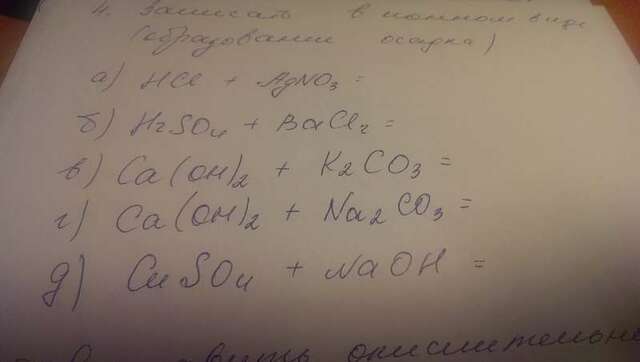 4. Записать в ионном виде
(образовании осадка)
а) HCl + AgNO₃ =
б) H₂SO₄ + BaCl₂ =
в) Ca(OH)₂ + K₂CO₃ =
г) Ca(OH)₂ + Na₂CO₃ =
д) CuSO₄ + NaOH =